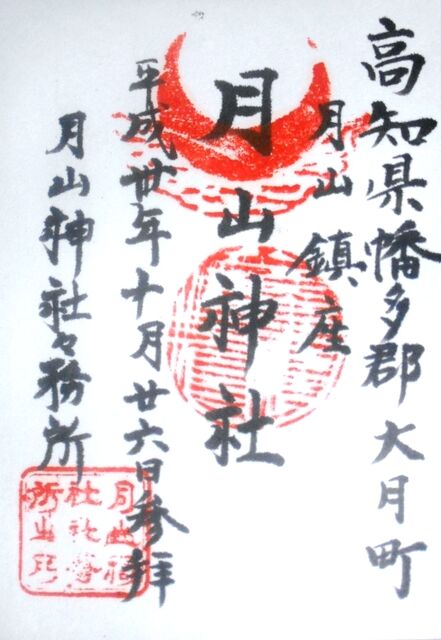 高知県幡多郡大月町
月山鎮座
月山神社
平成廿年十月廿六日参拝
月山神社々務所
月山神
社社務
所之印